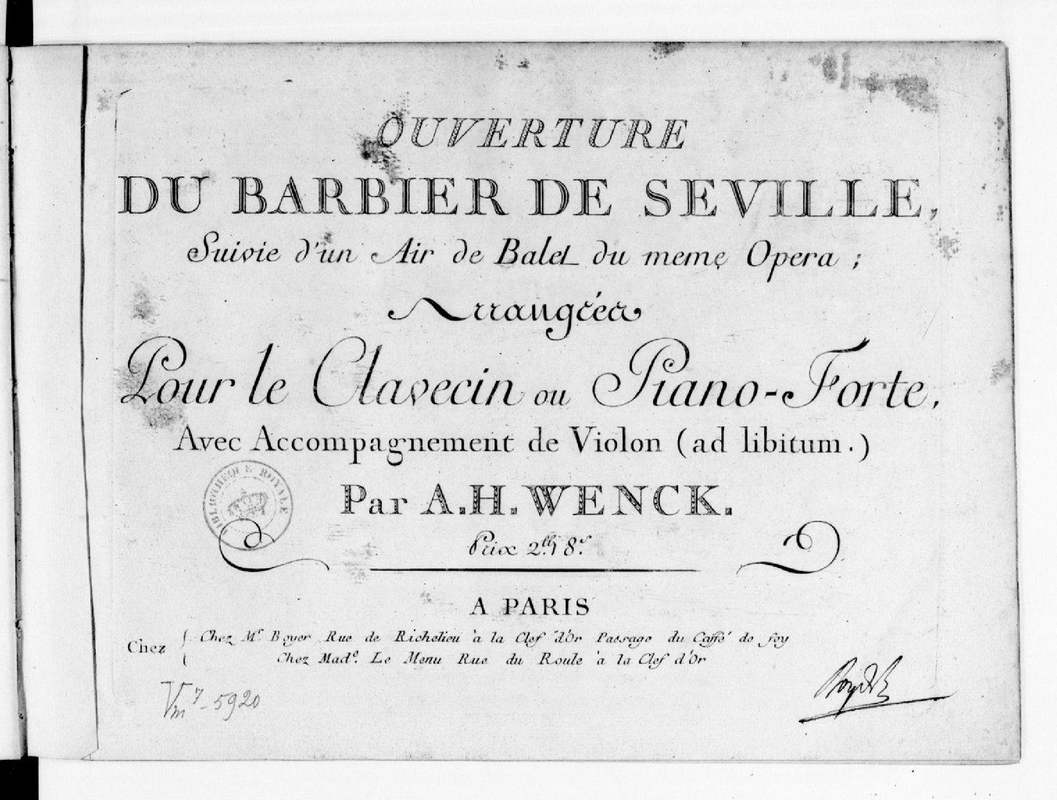 OUVERTURE
DU BARBIER DE SEVILLE,
Suivie d'un Air de Balet du meme Opera ;
Arrangées
Pour le Clavecin ou Piano-Forte,
Avec Accompagnement de Violon (ad libitum.)
BIBLIOTHEQUE ROYALE
Par A.H. WENCK.
Prix 2.tt 8.s
A PARIS
Chez
Chez Mr. Boyer Rue de Richelieu à la Clef d'Or Passage du Caffé de foy
Chez Made. Le Menu Rue du Roule à la Clef d'Or
Vm 7 - 5920